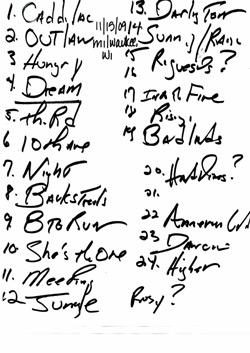 1. Cadillac
2. OUTlaw
3 Hungry
4. Dream
5. thRd
6 10th ave
7. Night
8. BacksTreets
9 BtoRun
10. She's thOne
11. Meeting
12 Jungle
11/15/09
milwaukee
wi
13.
14. Sunny/Rain
15
16 ?
17 Fire
18 Rising
19 Badlands
20. Hard Times?
21.
22 American
23 Dancin
24. Higher
Rosy?